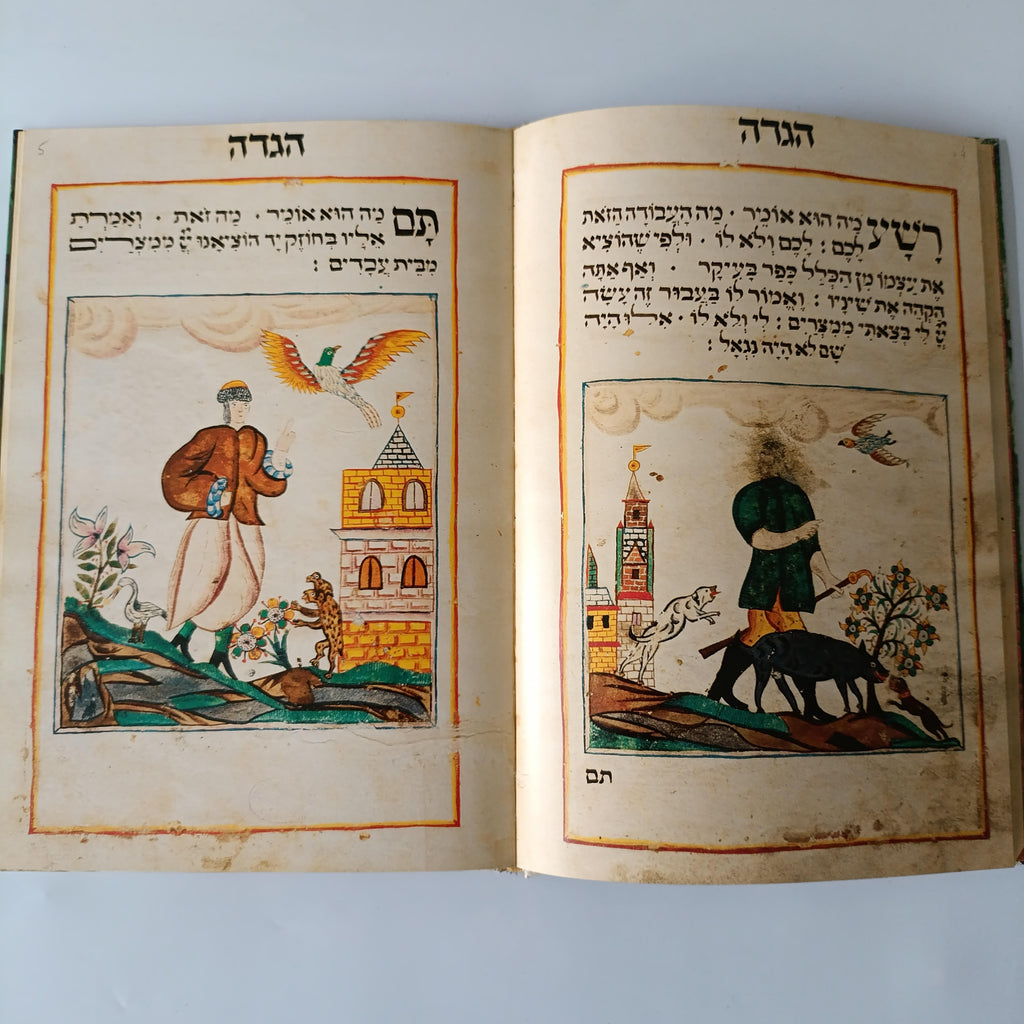 הגדה
רָשָׁע מַה הוּא אוֹמֵר · מָה הָעֲבוֹדָה הַזֹּאת
לָכֶם : לָכֶם וְלֹא לוֹ · וּלְפִי שֶׁהוֹצִיא
אֶת עַצְמוֹ מִן הַכְּלָל כָּפַר בָּעִיקָר · וְאַף אַתָּה
הַקְהֵה אֶת שִׁינָיו : וֶאֱמוֹר לוֹ בַּעֲבוּר זֶה עָשָׂה
יְיָ לִי בְּצֵאתִי מִמִּצְרַיִם : לִי וְלֹא לוֹ · אִילוּ הָיָה
שָׁם לֹא הָיָה נִגְאָל :
תם
הגדה
5
תָּם מַה הוּא אוֹמֵר · מַה זֹאת · וְאָמַרְתָּ
אֵלָיו בְּחוֹזֶק יָד הוֹצִיאָנוּ יְיָ מִמִּצְרַיִם
מִבֵּית עֲבָדִים :